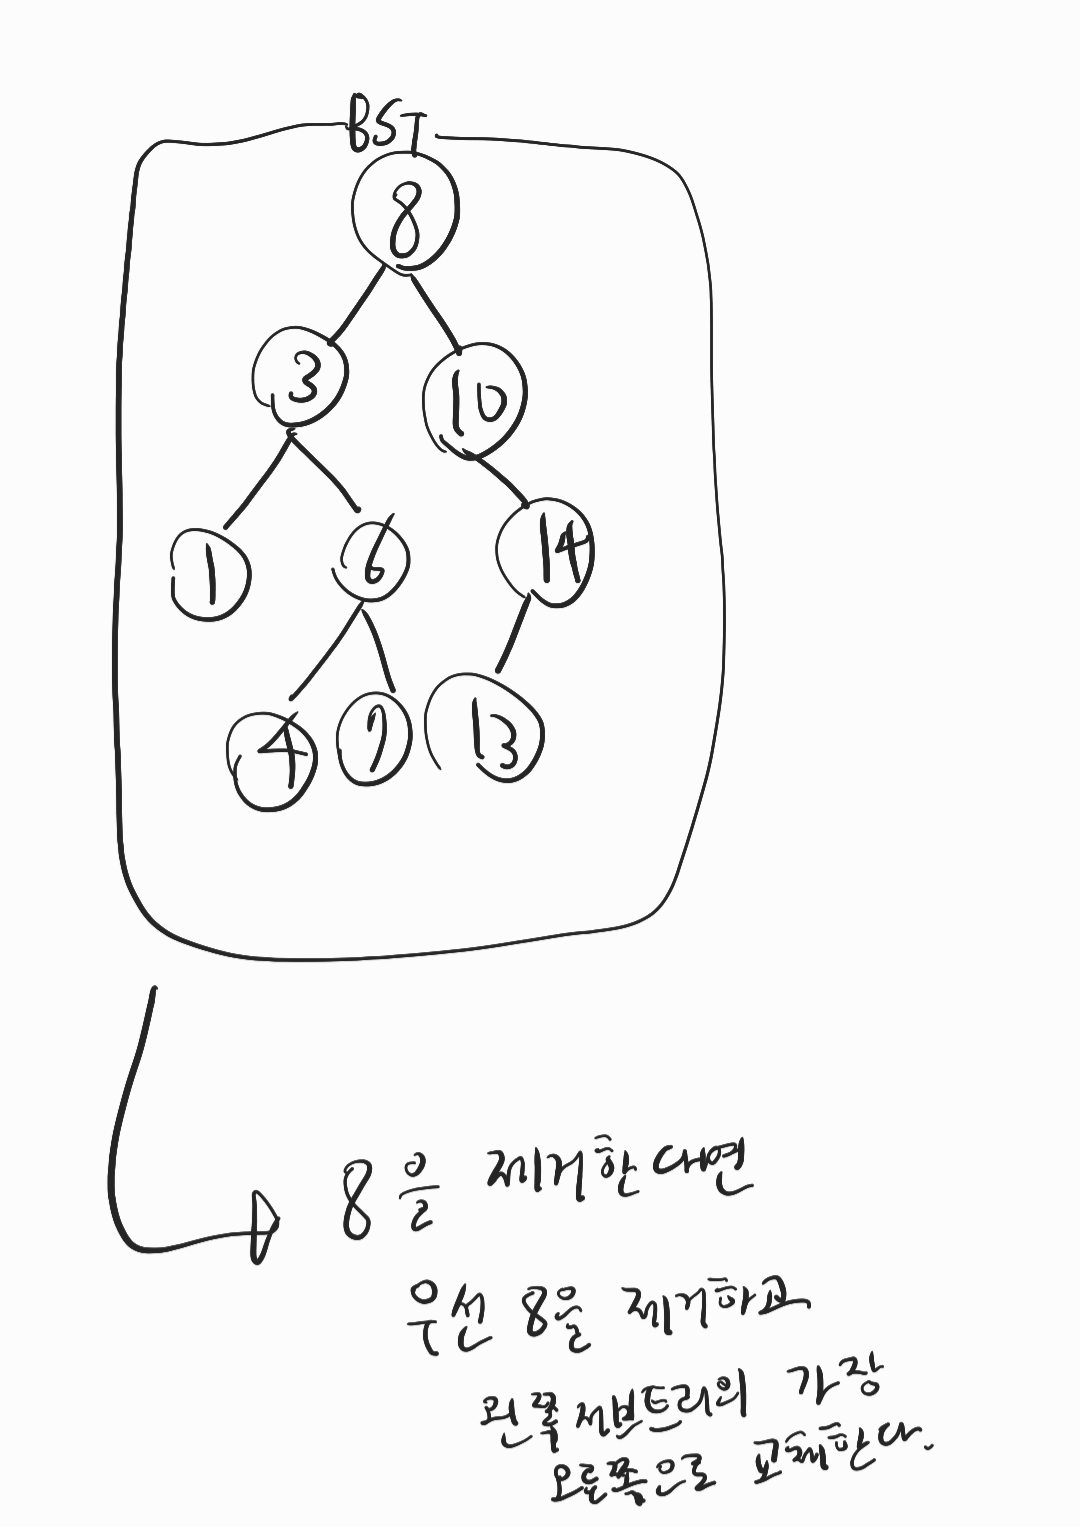 BST
8
3 10
1 6 14
4 7 13
8을 제거한다면
우선 8을 제거하고
왼쪽 서브트리의 가장
오른쪽으로 교체한다.